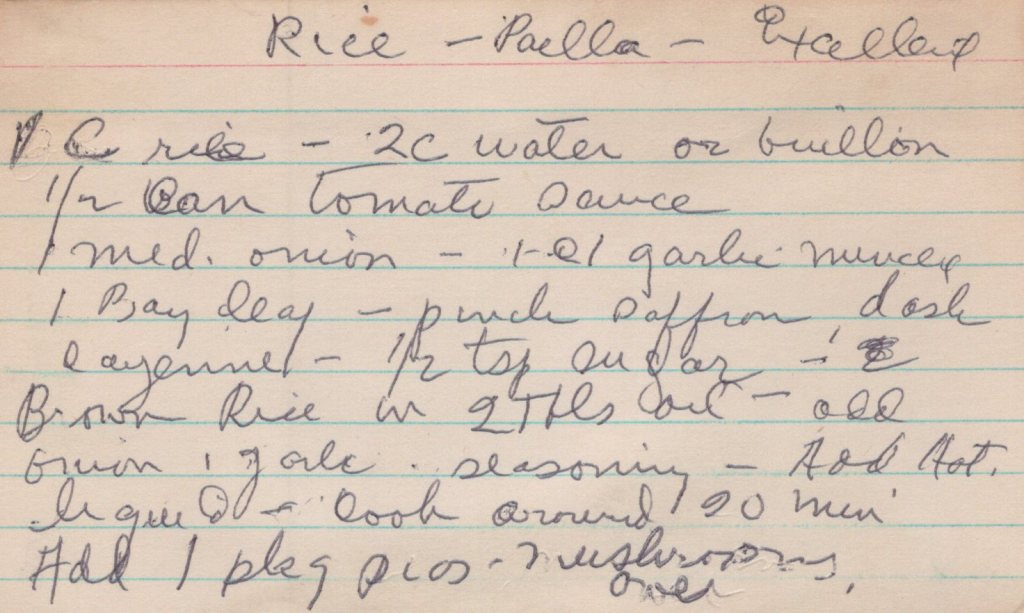 Rice - Paella - Excellent
1 C rice - 2c water or buillon
1/2 can tomato sauce
1 med. onion - 1-cl garlic minced
1 Bay leaf - pinch saffron, dash
cayenne - 1/2 tsp sugar -
Brown Rice in 2 Tbls oil - add
onion, garlic. seasoning - Add Hot.
liquid - Cook around 20 min
Add 1 pkg peas - mushrooms,
over